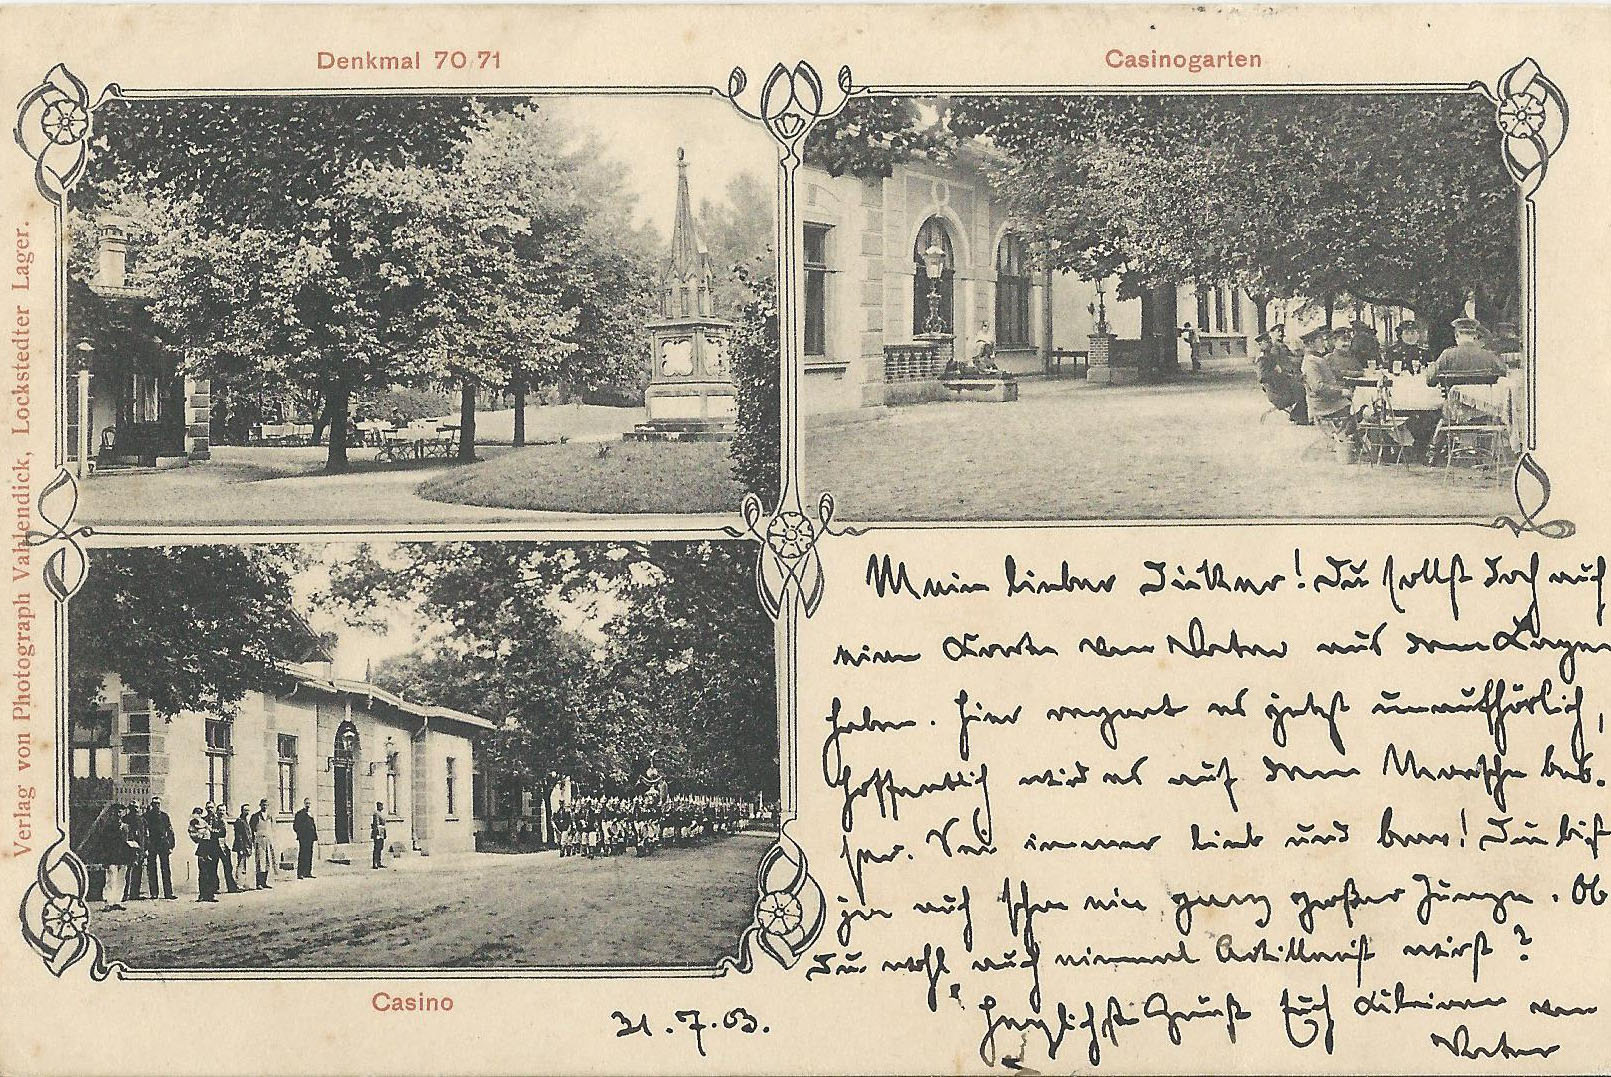 Denkmal 70/71
Casinogarten
Verlag von Photograph Vahlendick, Lockstedter Lager.
Casino
Mein lieber ! Du sollst doch auch
eine Karte von Vater aus dem Lager
haben. Hier regnet es jetzt unaufhörlich,
hoffentlich wird es auf dem Marsche bes-
ser. Sei immer lieb und brav! Du bist
ja auch schon ein ganz großer Junge. Ob
Du wohl auch einmal Artillerist wirst?
Herzlichste Grüße Euch von
Vater
31.7.03.